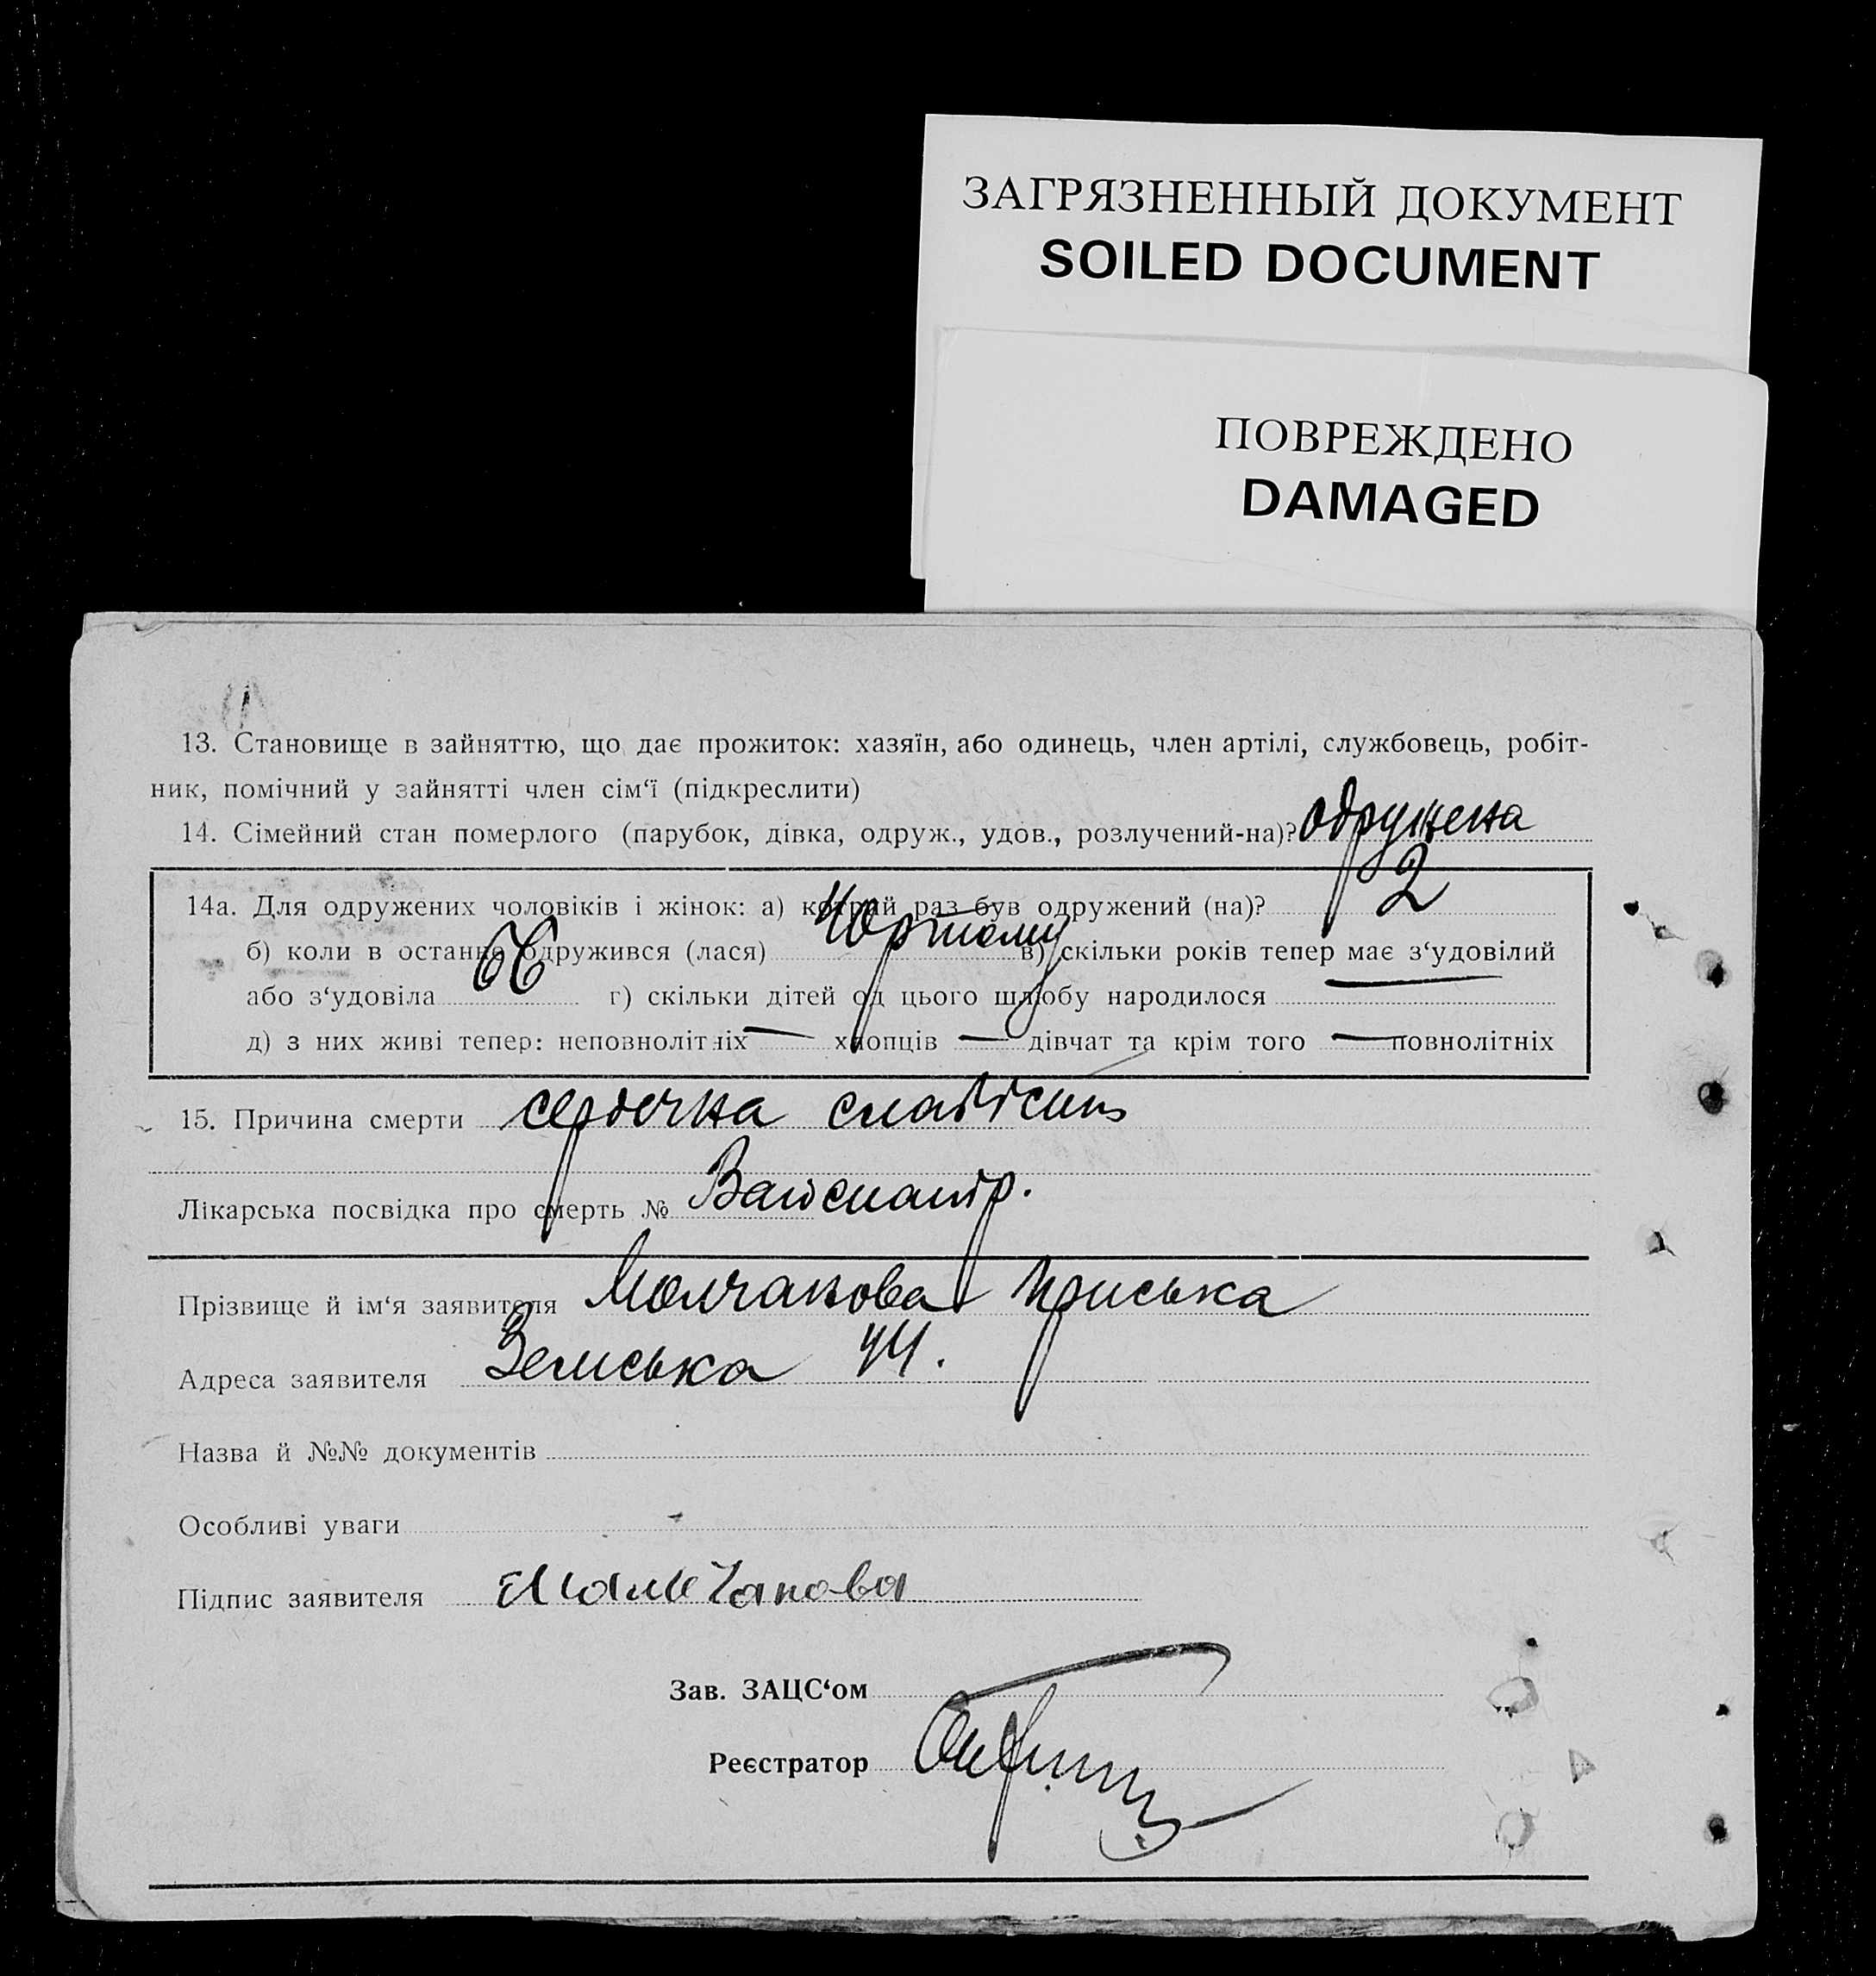 ЗАГРЯЗНЕННЫЙ ДОКУМЕНТ
SOILED DOCUMENT
ПОВРЕЖДЕНО
DAMAGED
13. Становище в зайняттю, що дає прожиток: хазяїн, або одинець, член артілі, службовець, робіт-
ник, помічний у зайнятті член сім‘ї (підкреслити)
14. Сімейний стан померлого (парубок, дівка, одруж., удов., розлучений-на)? одружена
14а. Для одружених чоловіків і жінок: а) котрий раз був одружений (на)? 2
б) коли в останнє одружився (лася) в) скільки років тепер має з‘удовілий
або з‘удовіла 66 г) скільки дітей од цього шлюбу народилося —
д) з них живі тепер: неповнолітніх — хлопців — дівчат та крім того — повнолітніх
15. Причина смерти сердечна слабість
Лікарська посвідка про смерть №
Прізвище й ім‘я заявителя Молчанова Приська
Адреса заявителя Земська 44.
Назва й №№ документів
Особливі уваги
Підпис заявителя
Зав. ЗАЦС‘ом
Реєстратор